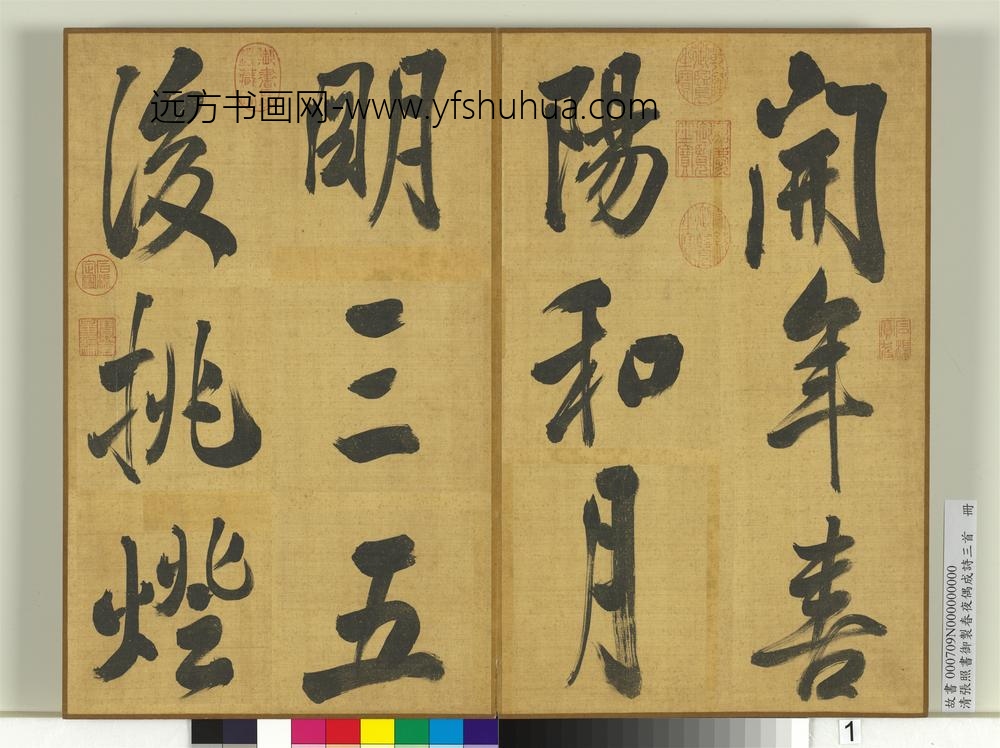 远方书画网-www.yfshuhua.com
開年春
陽和月
明三五
後挑燈
故書 000709N000000000
清張照書御製春夜偶成詩三首 冊
1